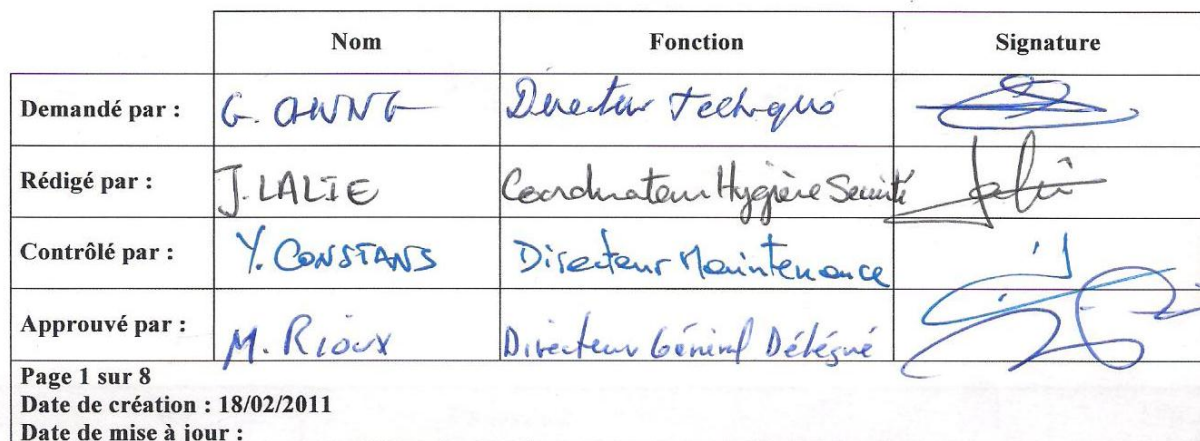 Nom Fonction Signature
Demandé par : G. Directeur Technique
Rédigé par : J. LALIE Coordinateur Hygiène Sécurité
Contrôlé par : Y. CONSTANS Directeur Maintenance
Approuvé par : M. Rioux Directeur Général Délégué
Page 1 sur 8
Date de création : 18/02/2011
Date de mise à jour :